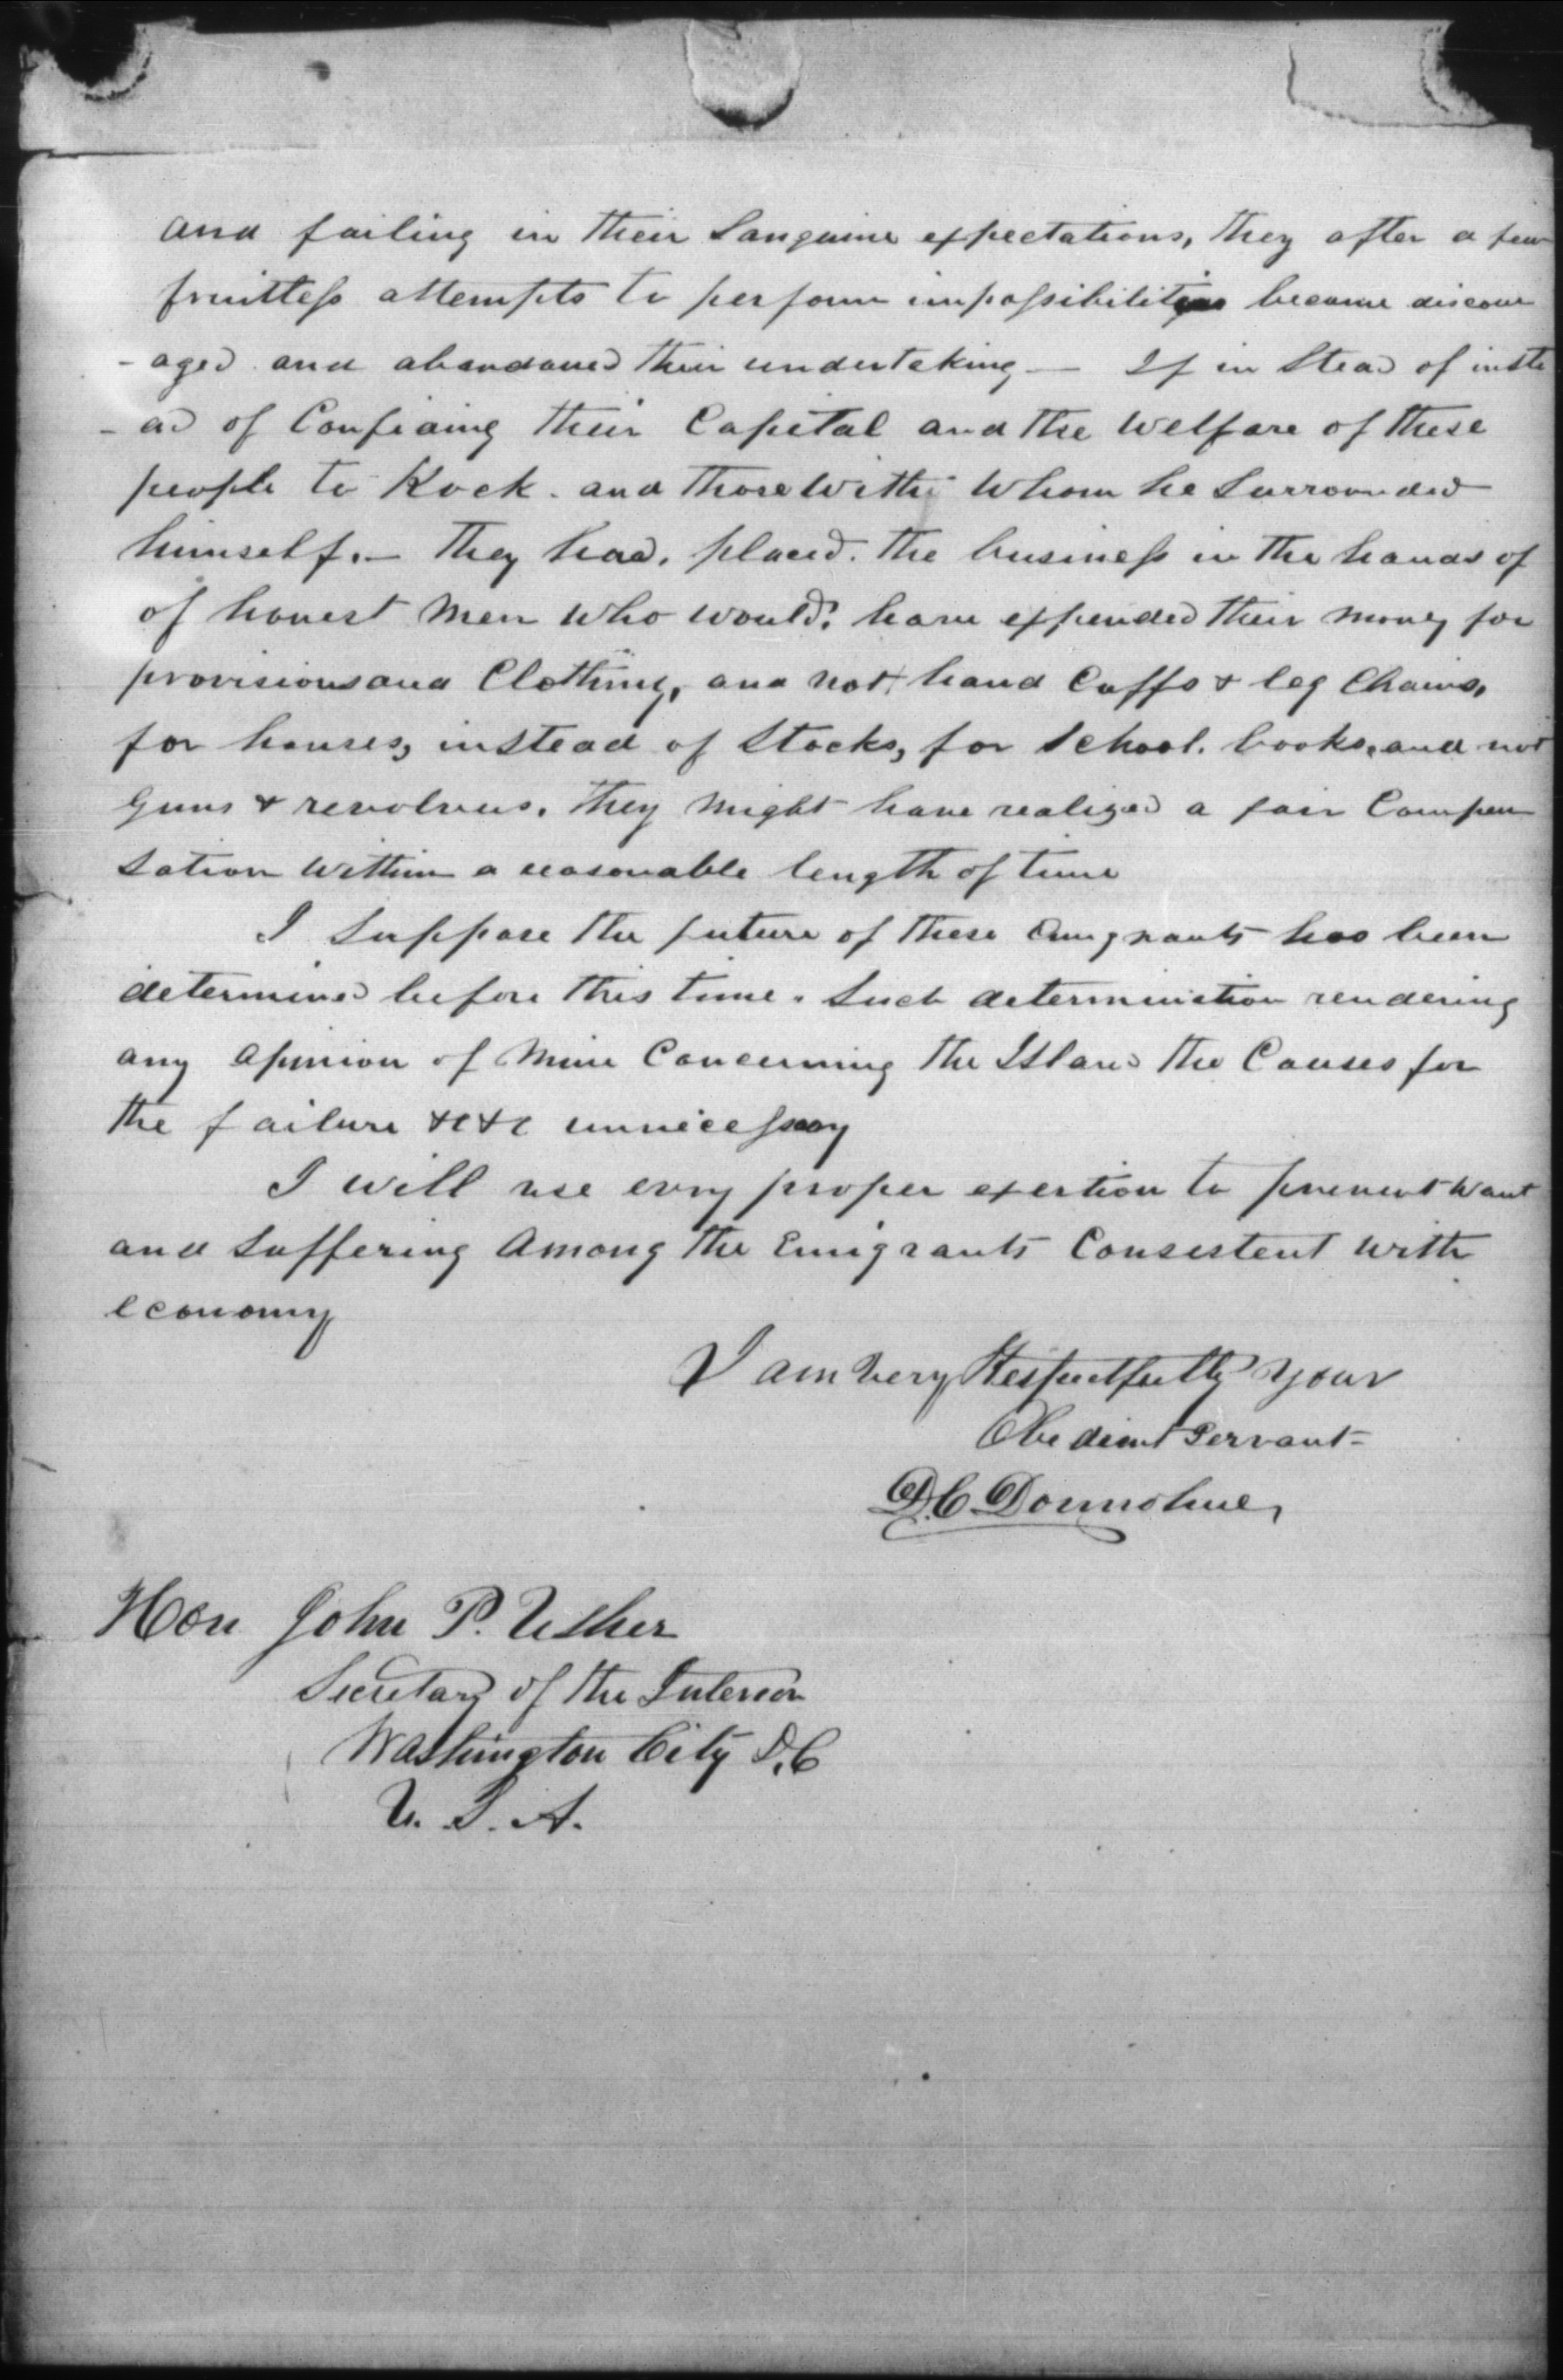 and failing in their Sanguine expectations, they after a few
fruitless attempts to perform impossibilities became discour
- aged and abandoned their undertaking — If in Stead of inste
- ad of Confiding their Capital and the welfare of these
people to Kock. and those with whom he Surrounded
himself. — They had, placed. the business in the hands of
of honest Men who would, have expended their money for
provisions and Clothing, and not hand Cuffs & leg Chains,
for houses, instead of Stocks, for School. books, and not
Guns & revolvers. They might have realized a fair Compen
sation within a reasonable length of time
I Suppose the future of these Emigrants has been
determined before this time. Such determination rendering
any opinion of Mine Concerning the Island the Causes for
the failure &c &c unnecessary
I will use evry proper exertion to prevent want
and Suffering Among the Emigrants Consistent with
economy
I am very Respectfully your
Obedient Servant
D. C. Donnohue,
Hon John P. Usher
Secretary of the Interior
Washington City D. C
U. S. A.